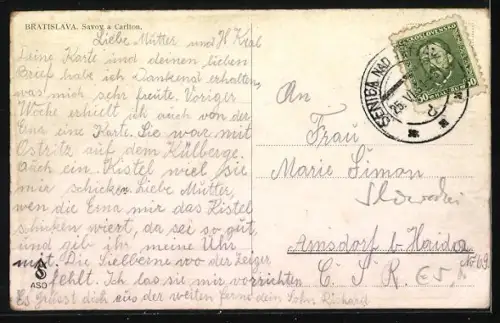 BRATISLAVA. Savoy & Carlton.
Liebe Mutter und H Kral
Deine Karte und deinen lieben
Brief habe ich Dankend erhalten,
was mich sehr freute. Voriger
Woche erhielt ich auch von der
Ema eine Karte. Sie war mit
Ostritz auf dem Külberge.
Auch ein Kistel wiel sie
mir schicken. Liebe Mutter,
wen die Ema mir das Kistel
schicken wiert, da sei so gut
und gib ihr meine Uhr
mit. Die Sielberne wo der Zeiger
fehlt. Ich las sie mir vorrichten
Es Grüsst dich aus der weiten ferne dein Sohn Richard
ASO
ČESKOSLOVENSKO
SENICA NAD
25.VI
An
Frau
Marie Simon
Amsdorf b. Haida
Nr 69
Č. S. R.